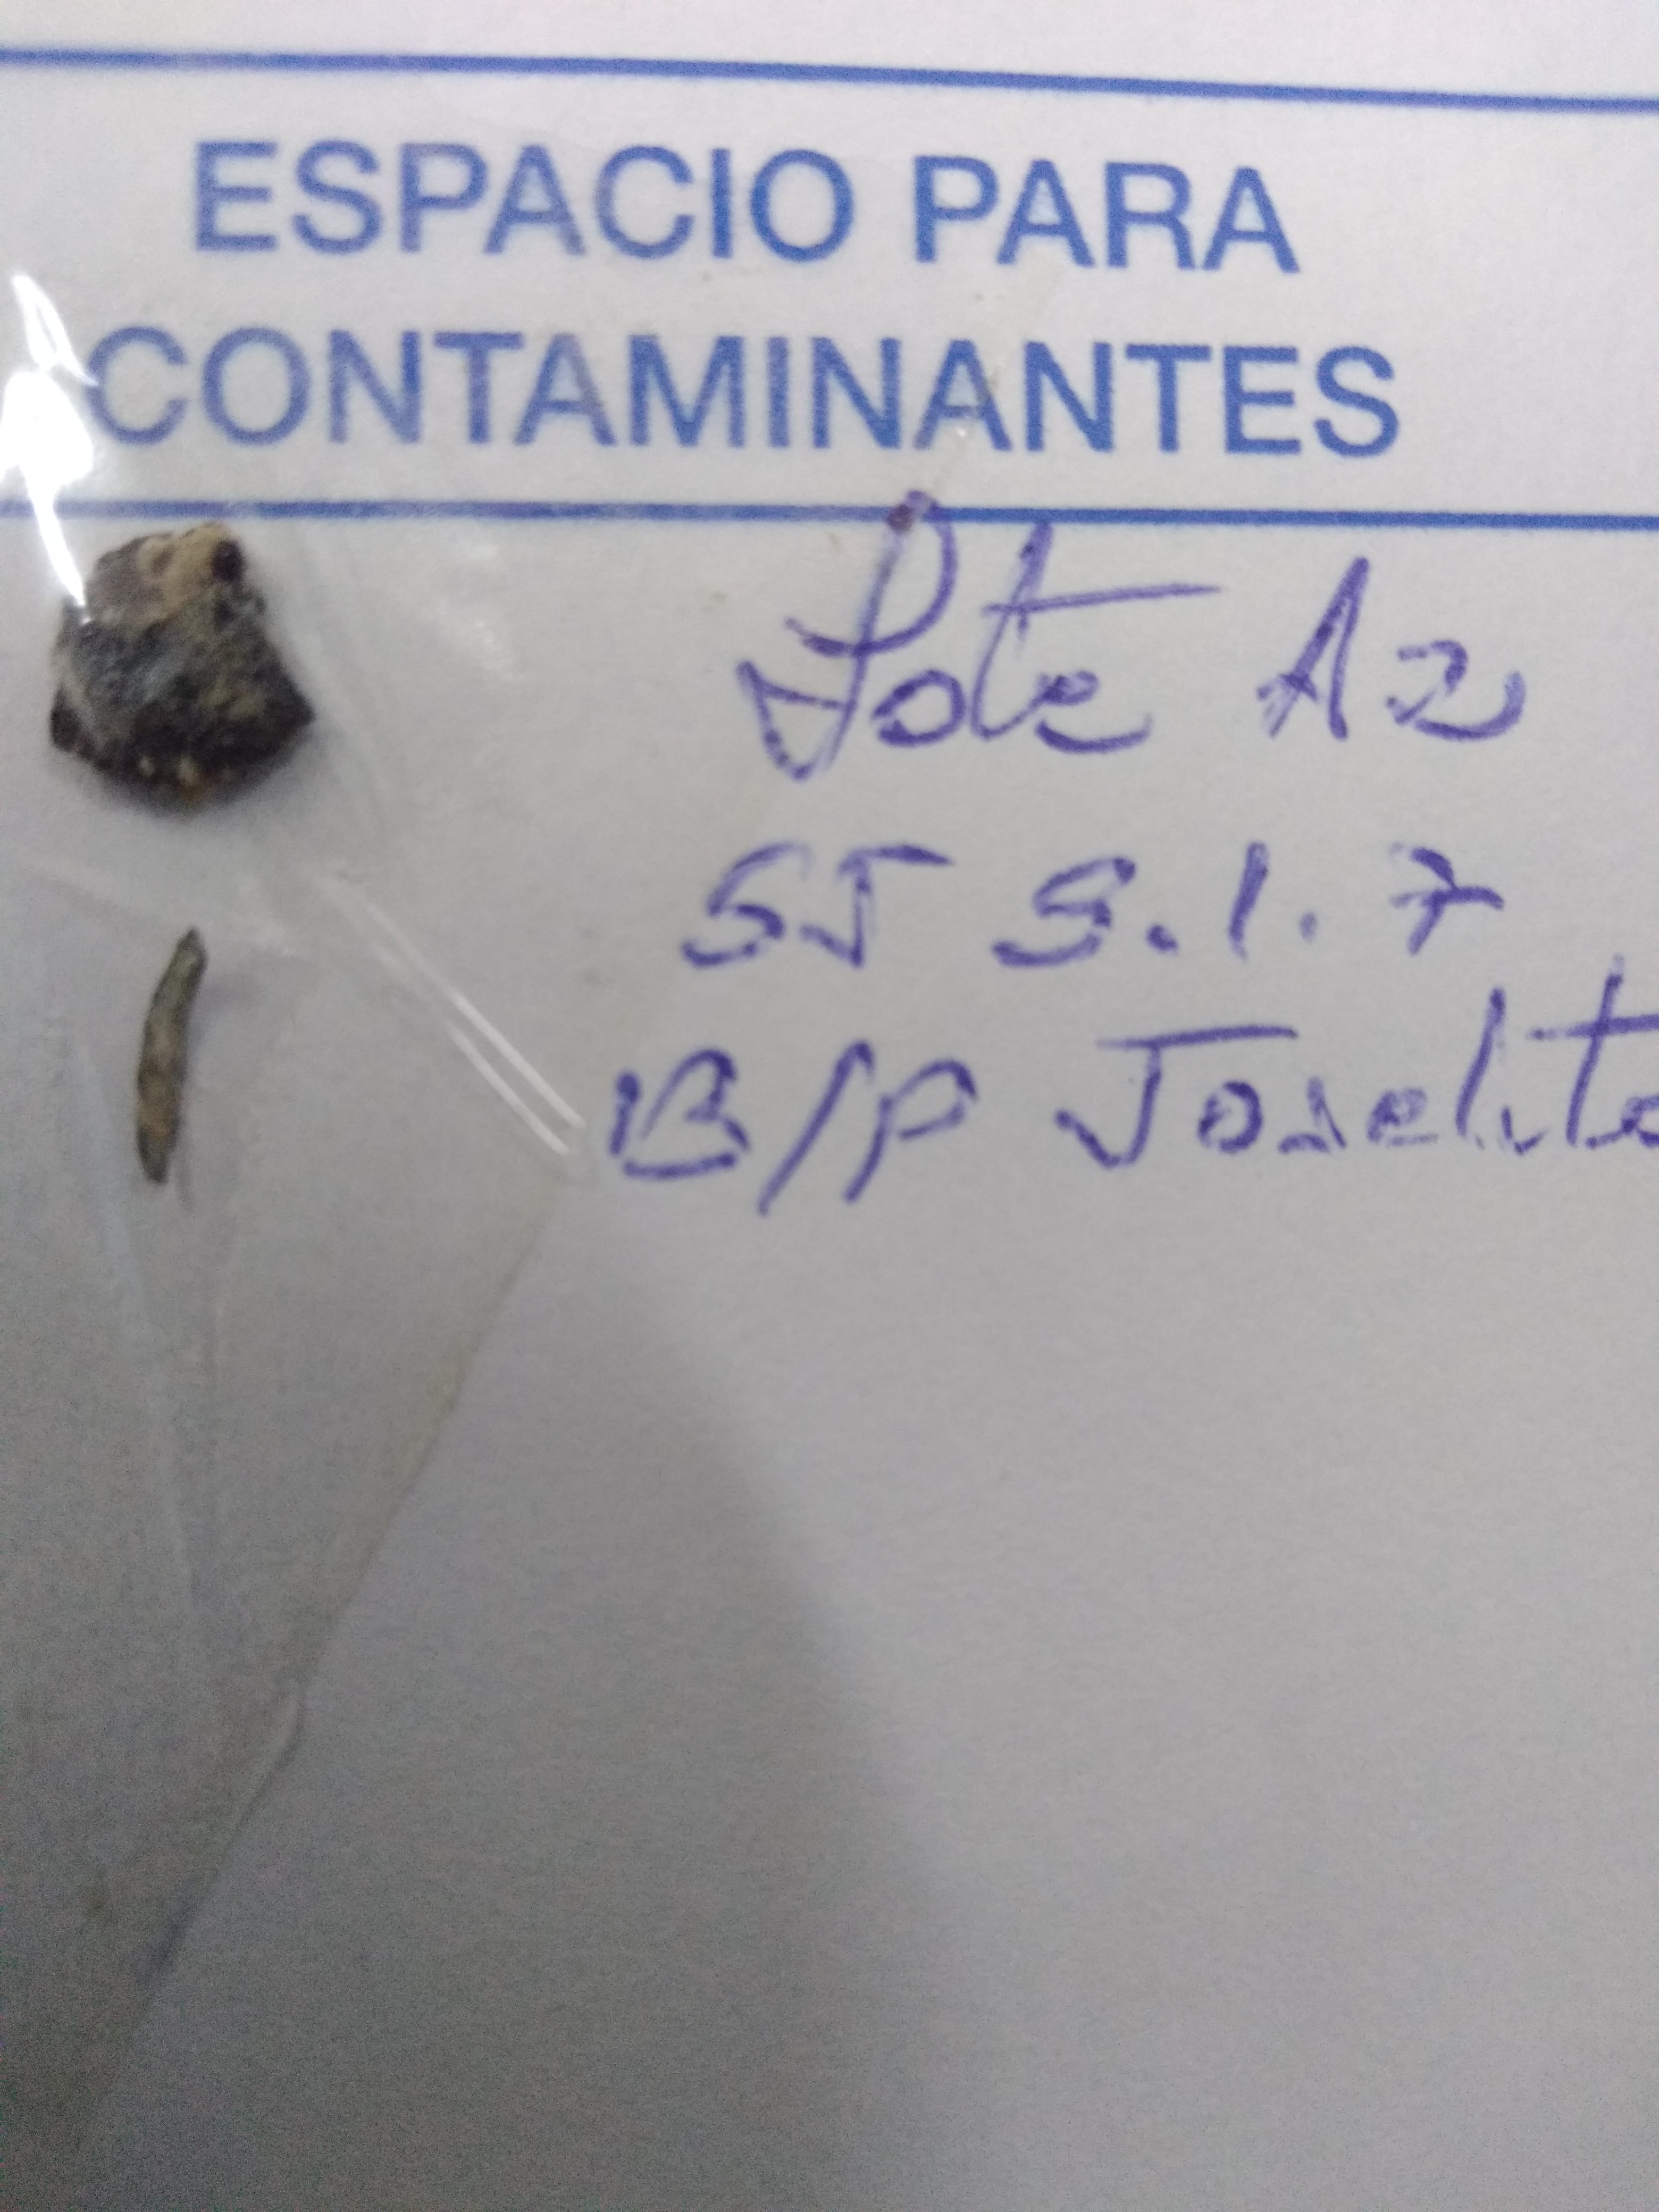 ESPACIO PARA
CONTAMINANTES
Lote A2
SJ S.1.7
B/P Joselito